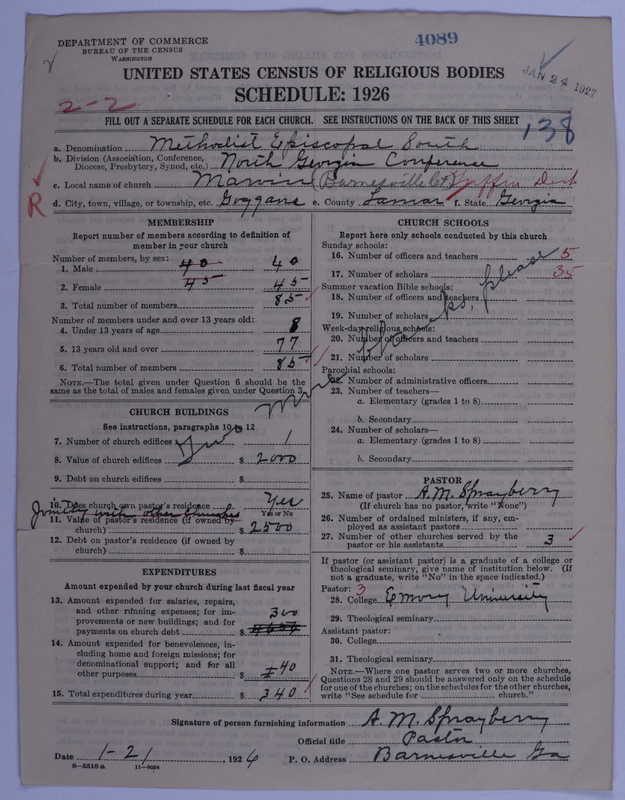 DEPARTMENT OF COMMERCE
BUREAU OF THE CENSUS
WASHINGTON
4089
JAN 24 1927
UNITED STATES CENSUS OF RELIGIOUS BODIES
SCHEDULE: 1926
2-2
FILL OUT A SEPARATE SCHEDULE FOR EACH CHURCH. SEE INSTRUCTIONS ON THE BACK OF THIS SHEET
138
a. Denomination Methodist Episcopal South
b. Division (Association, Conference, Diocese, Presbytery, Synod, etc.) North Georgia Conference
c. Local name of church Marvin Barnesville Ct Griffin Dist
R
d. City, town, village, or township, etc. Goggans e. County Lamar f. State Georgia
MEMBERSHIP
Report number of members according to definition of
member in your church
Number of members, by sex:
1. Male 40 40
2. Female 45 45
3. Total number of members 85
Number of members under and over 13 years old:
4. Under 13 years of age 8
5. 13 years old and over 77
6. Total number of members 85
NOTE.—The total given under Question 6 should be the
same as the total of males and females given under Question 3.
CHURCH BUILDINGS
See instructions, paragraphs 10 to 12
7. Number of church edifices 1
8. Value of church edifices $ 2000
9. Debt on church edifices $
10. Does church own pastor's residence Yes
Yes or No
Jointly with other churches
11. Value of pastor's residence (if owned by
church) $ 2500
12. Debt on pastor's residence (if owned by
church) $
EXPENDITURES
Amount expended by your church during last fiscal year
13. Amount expended for salaries, repairs,
and other running expenses; for im-
provements or new buildings; and for
payments on church debt $ 300
14. Amount expended for benevolences, in-
cluding home and foreign missions; for
denominational support; and for all
other purposes $ 40
15. Total expenditures during year $ 340
CHURCH SCHOOLS
Report here only schools conducted by this church
Sunday schools:
16. Number of officers and teachers 5
17. Number of scholars 35
Summer vacation Bible schools:
18. Number of officers and teachers
19. Number of scholars
Week-day religious schools:
20. Number of officers and teachers
21. Number of scholars
Parochial schools:
22. Number of administrative officers
23. Number of teachers—
a. Elementary (grades 1 to 8)
b. Secondary
24. Number of scholars—
a. Elementary (grades 1 to 8)
b. Secondary
please
PASTOR
25. Name of pastor A. M. Sprayberry
(If church has no pastor, write "None")
26. Number of ordained ministers, if any, em-
ployed as assistant pastors
27. Number of other churches served by the
pastor or his assistants 3
If pastor (or assistant pastor) is a graduate of a college or
theological seminary, give name of institution below. (If
not a graduate, write "No" in the space indicated.)
Pastor: 3
28. College Emory University
29. Theological seminary
Assistant pastor:
30. College
31. Theological seminary
NOTE.—Where one pastor serves two or more churches,
Questions 28 and 29 should be answered only on the schedule
for one of the churches; on the schedules for the other churches,
write "See schedule for church."
Signature of person furnishing information A. M. Sprayberry
Official title Pastor
Date 1-21, 1926 P. O. Address Barnesville Ga
8-5518a 11-9064